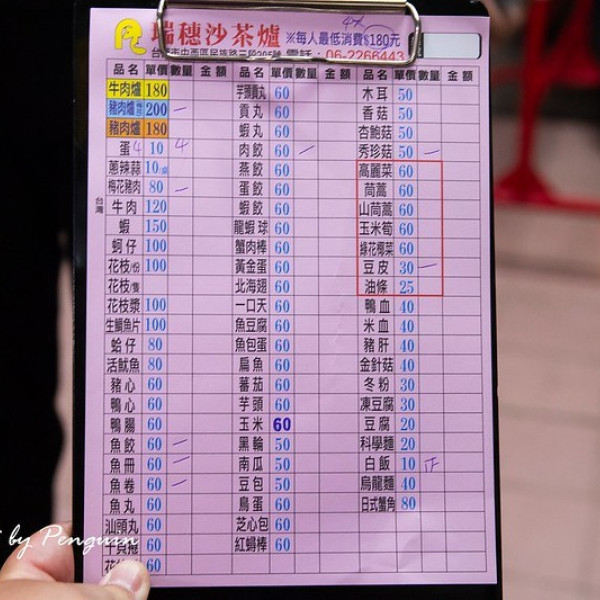 瑞穗沙茶爐 ※每人最低消費$180元
台南市中西區民族路三段205號 電話：06-2266443
品名 單價 數量 金額 品名 單價 數量 金額 品名 單價 數量 金額
牛肉爐 180 芋頭貢丸 60 木耳 50
豬肉爐 200 一 貢丸 60 香菇 50
豬肉爐 180 蝦丸 60 杏鮑菇 50
蛋 4 10 4 肉餃 60 一 秀珍菇 50 一
蔥辣蒜 10 燕餃 60 高麗菜 60
梅花豬肉 80 一 蛋餃 60 茼蒿 60
台灣 牛肉 120 蝦餃 60 山茼蒿 60
蝦 150 龍蝦球 60 玉米筍 60
蚵仔 100 蟹肉棒 60 綠花椰菜 60
花枝/份 100 黃金蛋 60 豆皮 30 一
花枝/隻 北海翅 60 油條 25
花枝漿 100 一口天 60 鴨血 40
生鯛魚片 100 魚豆腐 60 米血 40
蛤仔 80 魚包蛋 60 豬肝 40
活魷魚 80 扁魚 60 金針菇 40
豬心 60 蕃茄 60 冬粉 30
鴨心 60 芋頭 60 凍豆腐 30
鴨腸 60 玉米 60 豆腐 20
魚餃 60 一 黑輪 50 科學麵 20
魚冊 60 一 南瓜 50 白飯 10 正
魚卷 60 一 豆包 50 烏龍麵 40
魚丸 60 鳥蛋 60 日式蟹角 80
汕頭丸 60 芝心包 60
干貝捲 60 紅蟳棒 60
花 60
by Penguin